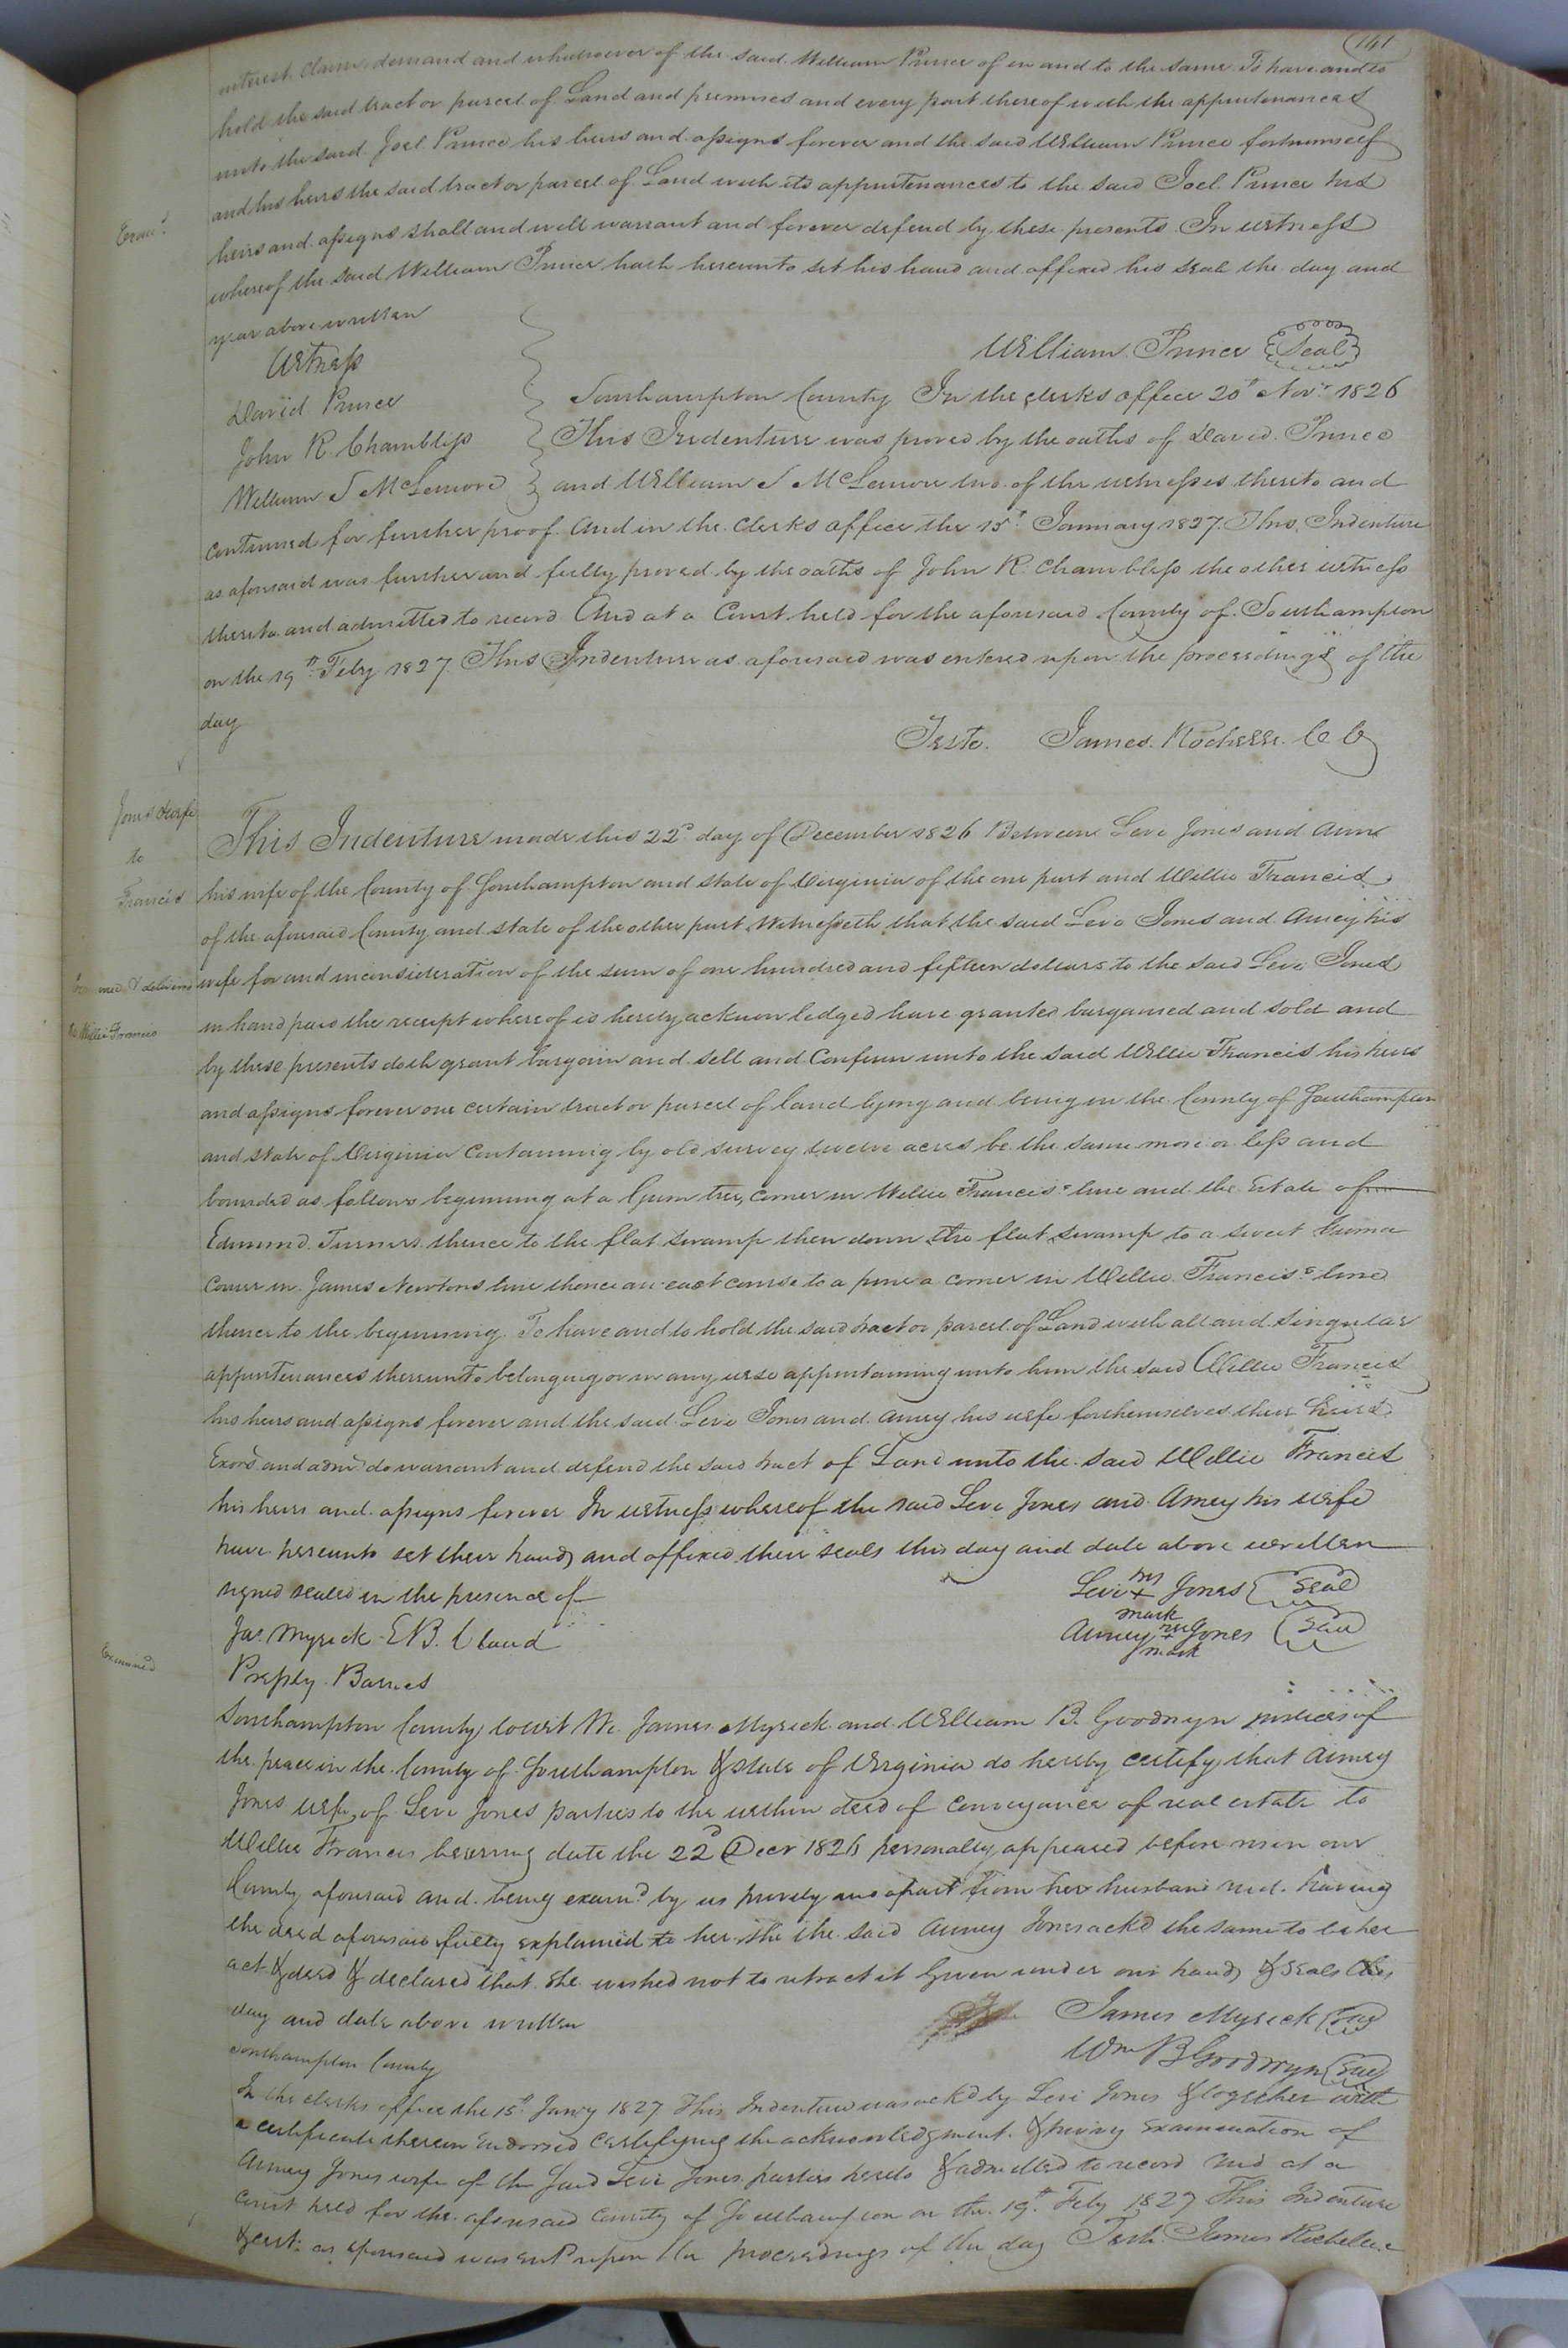 141
interest claim demand and whatsoever of the said William Prince of in and to the same To have and to
hold the said tract or parcel of Land and premises and every part thereof with the appurtenances
unto the said Joel Prince his heirs and assigns forever and the said William Prince for himself
and his heirs the said tract or parcel of Land with its appurtenances to the said Joel Prince his
heirs and assigns shall and will warrant and forever defend by these presents In witness
whereof the said William Prince hath hereunto set his hand and affixed his seal the day and
year above written
William Prince Seal
Witness
David Prince
John R. Chambliss
William S McLemore
Southampton County In the clerks office 20th Novr 1826
This Indenture was proved by the oaths of David Prince
and William S McLemore two of the witnesses thereto and
continued for further proof And in the Clerks office the 15th January 1827. This Indenture
as aforesaid was further and fully proved by the oaths of John R. Chambless the other witness
thereto and admitted to record And at a Court held for the aforesaid County of Southampton
on the 19th Feby 1827. This Indenture as aforesaid was entered upon the proceedings of the
day
Teste. James Rochelle C C
Jones & wife
to
Francis
Examined & delivered
to Willie Francis
This Indenture made this 22d day of December 1826 Between Levi Jones and Anne
his wife of the County of Southampton and state of Virginia of the one part and Willie Francis
of the aforesaid County and state of the other part Witnesseth that the said Levi Jones and Amey his
wife for and inconsideration of the sum of one hundred and fifteen dollars to the said Levi Jones
in hand paid the receipt whereof is hereby acknowledged have granted bargained and sold and
by these presents doth grant bargain and sell and Confirm unto the said Willie Francis his heirs
and assigns forever one certain tract or parcel of land lying and being in the County of Southampton
and state of Virginia Containing by old survey twelve acres be the same more or less and
bounded as follows beginning at a Gum tree, corner in Willie Francis's line and the Estate of
Edmund Turners thence to the flat swamp then down the flat swamp to a sweet
Corner in James Newtons line thence an east course to a pine a corner in Willie Francis's line
thence to the beginning. To have and to hold the said tract or parcel of Land with all and singular
appurtenances thereunto belonging or in any wise appertaining unto him the said Willie Francis
his heirs and assigns forever and the said Levi Jones and Amey his wife for themselves their heirs
Exors and admrs do warrant and defend the said tract of Land unto the said Willie Francis
his heirs and assigns forever In witness whereof the said Levi Jones and Amey his wife
have hereunto set their hands and affixed their seals this day and date above written
signed sealed in the presence of
Levi his + mark Jones Seal
Jas. Myrick E B. Claud
Amey her + mark Jones Seal
Presley Barnes
Examined
Southampton County towit We James Myrick and William B. Goodwyn justices of
the peace in the County of Southampton & state of Virginia do hereby certify that Amey
Jones wife of Levi Jones parties to the within deed of conveyance of real estate to
Willie Francis bearing date the 22d Decr 1826 personally appeared before us in our
County aforesaid and being examd by us privily and apart from her husband and having
the deed aforesaid fully explained to her she the said Amey Jones ackd the same to be her
act & deed & declared that she wished not to retract it Given under our hands & seals this
day and date above written
James Myrick Seal
Wm B Goodwyn Seal
Southampton County
In the clerks office the 15th Jany 1827 This Indenture was ackd by Levi Jones & together with
a certificate thereon Endorsed Certifying the acknowledgment & privy Examination of
Amey Jones wife of the said Levi Jones parties hereto & admitted to record and at a
Court held for the aforesaid County of Southampton on the 19th Feby 1827 This Indenture
& cert: as aforesaid was entd upon the proceedings of the day Teste James Rochelle